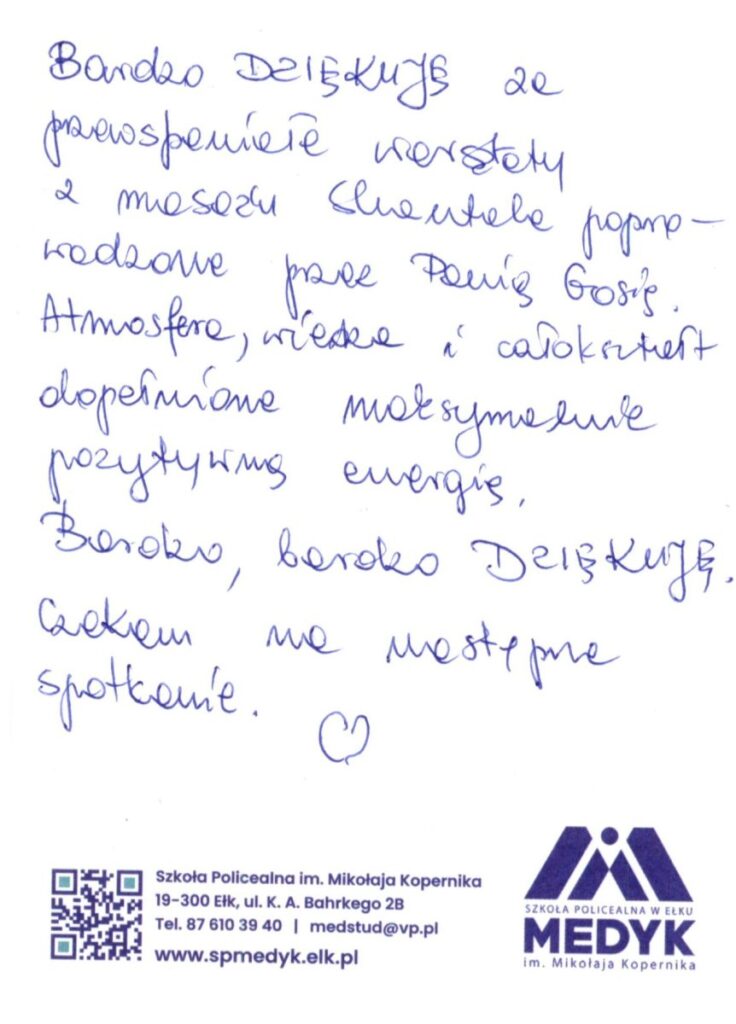 Bardzo DZIĘKUJĘ za
przewspaniałe warsztaty
z masażu Shantala popro-
wadzone przez Panią Gosię.
Atmosfera, wiedza i całokształt
dopełniona maksymalnie
pozytywną energią.
Bardzo, bardzo DZIĘKUJĘ.
Czekam na następne
spotkanie.
Szkoła Policealna im. Mikołaja Kopernika
19-300 Ełk, ul. K. A. Bahrkego 2B
Tel. 87 610 39 40 | medstud@vp.pl
www.spmedyk.elk.pl
SZKOŁA POLICEALNA W EŁKU
MEDYK
im. Mikołaja Kopernika